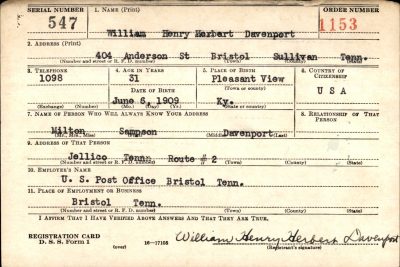 SERIAL NUMBER
1. NAME (Print)
ORDER NUMBER
547
William Henry Herbert Davenport
1153
2. ADDRESS (Print)
404 Anderson St Bristol Sullivan Tenn.
(Number and street or R. F. D. number) (Town) (County) (State)
3. TELEPHONE
4. AGE IN YEARS
5. PLACE OF BIRTH
6. COUNTRY OF CITIZENSHIP
1098
31
Pleasant View
(Town or county)
DATE OF BIRTH
USA
June 6, 1909
Ky.
(Exchange) (Number) (Mo.) (Day) (Yr.) (State or country)
7. NAME OF PERSON WHO WILL ALWAYS KNOW YOUR ADDRESS
8. RELATIONSHIP OF THAT PERSON
Milton Sampson Davenport
(Mr., Mrs., Miss) (Middle) (Last)
9. ADDRESS OF THAT PERSON
Jellico Tenn. Route # 2
(Number and street or R. F. D. number) (Town) (County) (State)
10. EMPLOYER'S NAME
U. S. Post Office Bristol Tenn.
11. PLACE OF EMPLOYMENT OR BUSINESS
Bristol Tenn.
(Number and street or R. F. D. number) (Town) (County) (State)
I AFFIRM THAT I HAVE VERIFIED ABOVE ANSWERS AND THAT THEY ARE TRUE.
REGISTRATION CARD
D. S. S. Form 1
(over)
16—17105
William Henry Herbert Davenport
(Registrant's signature)